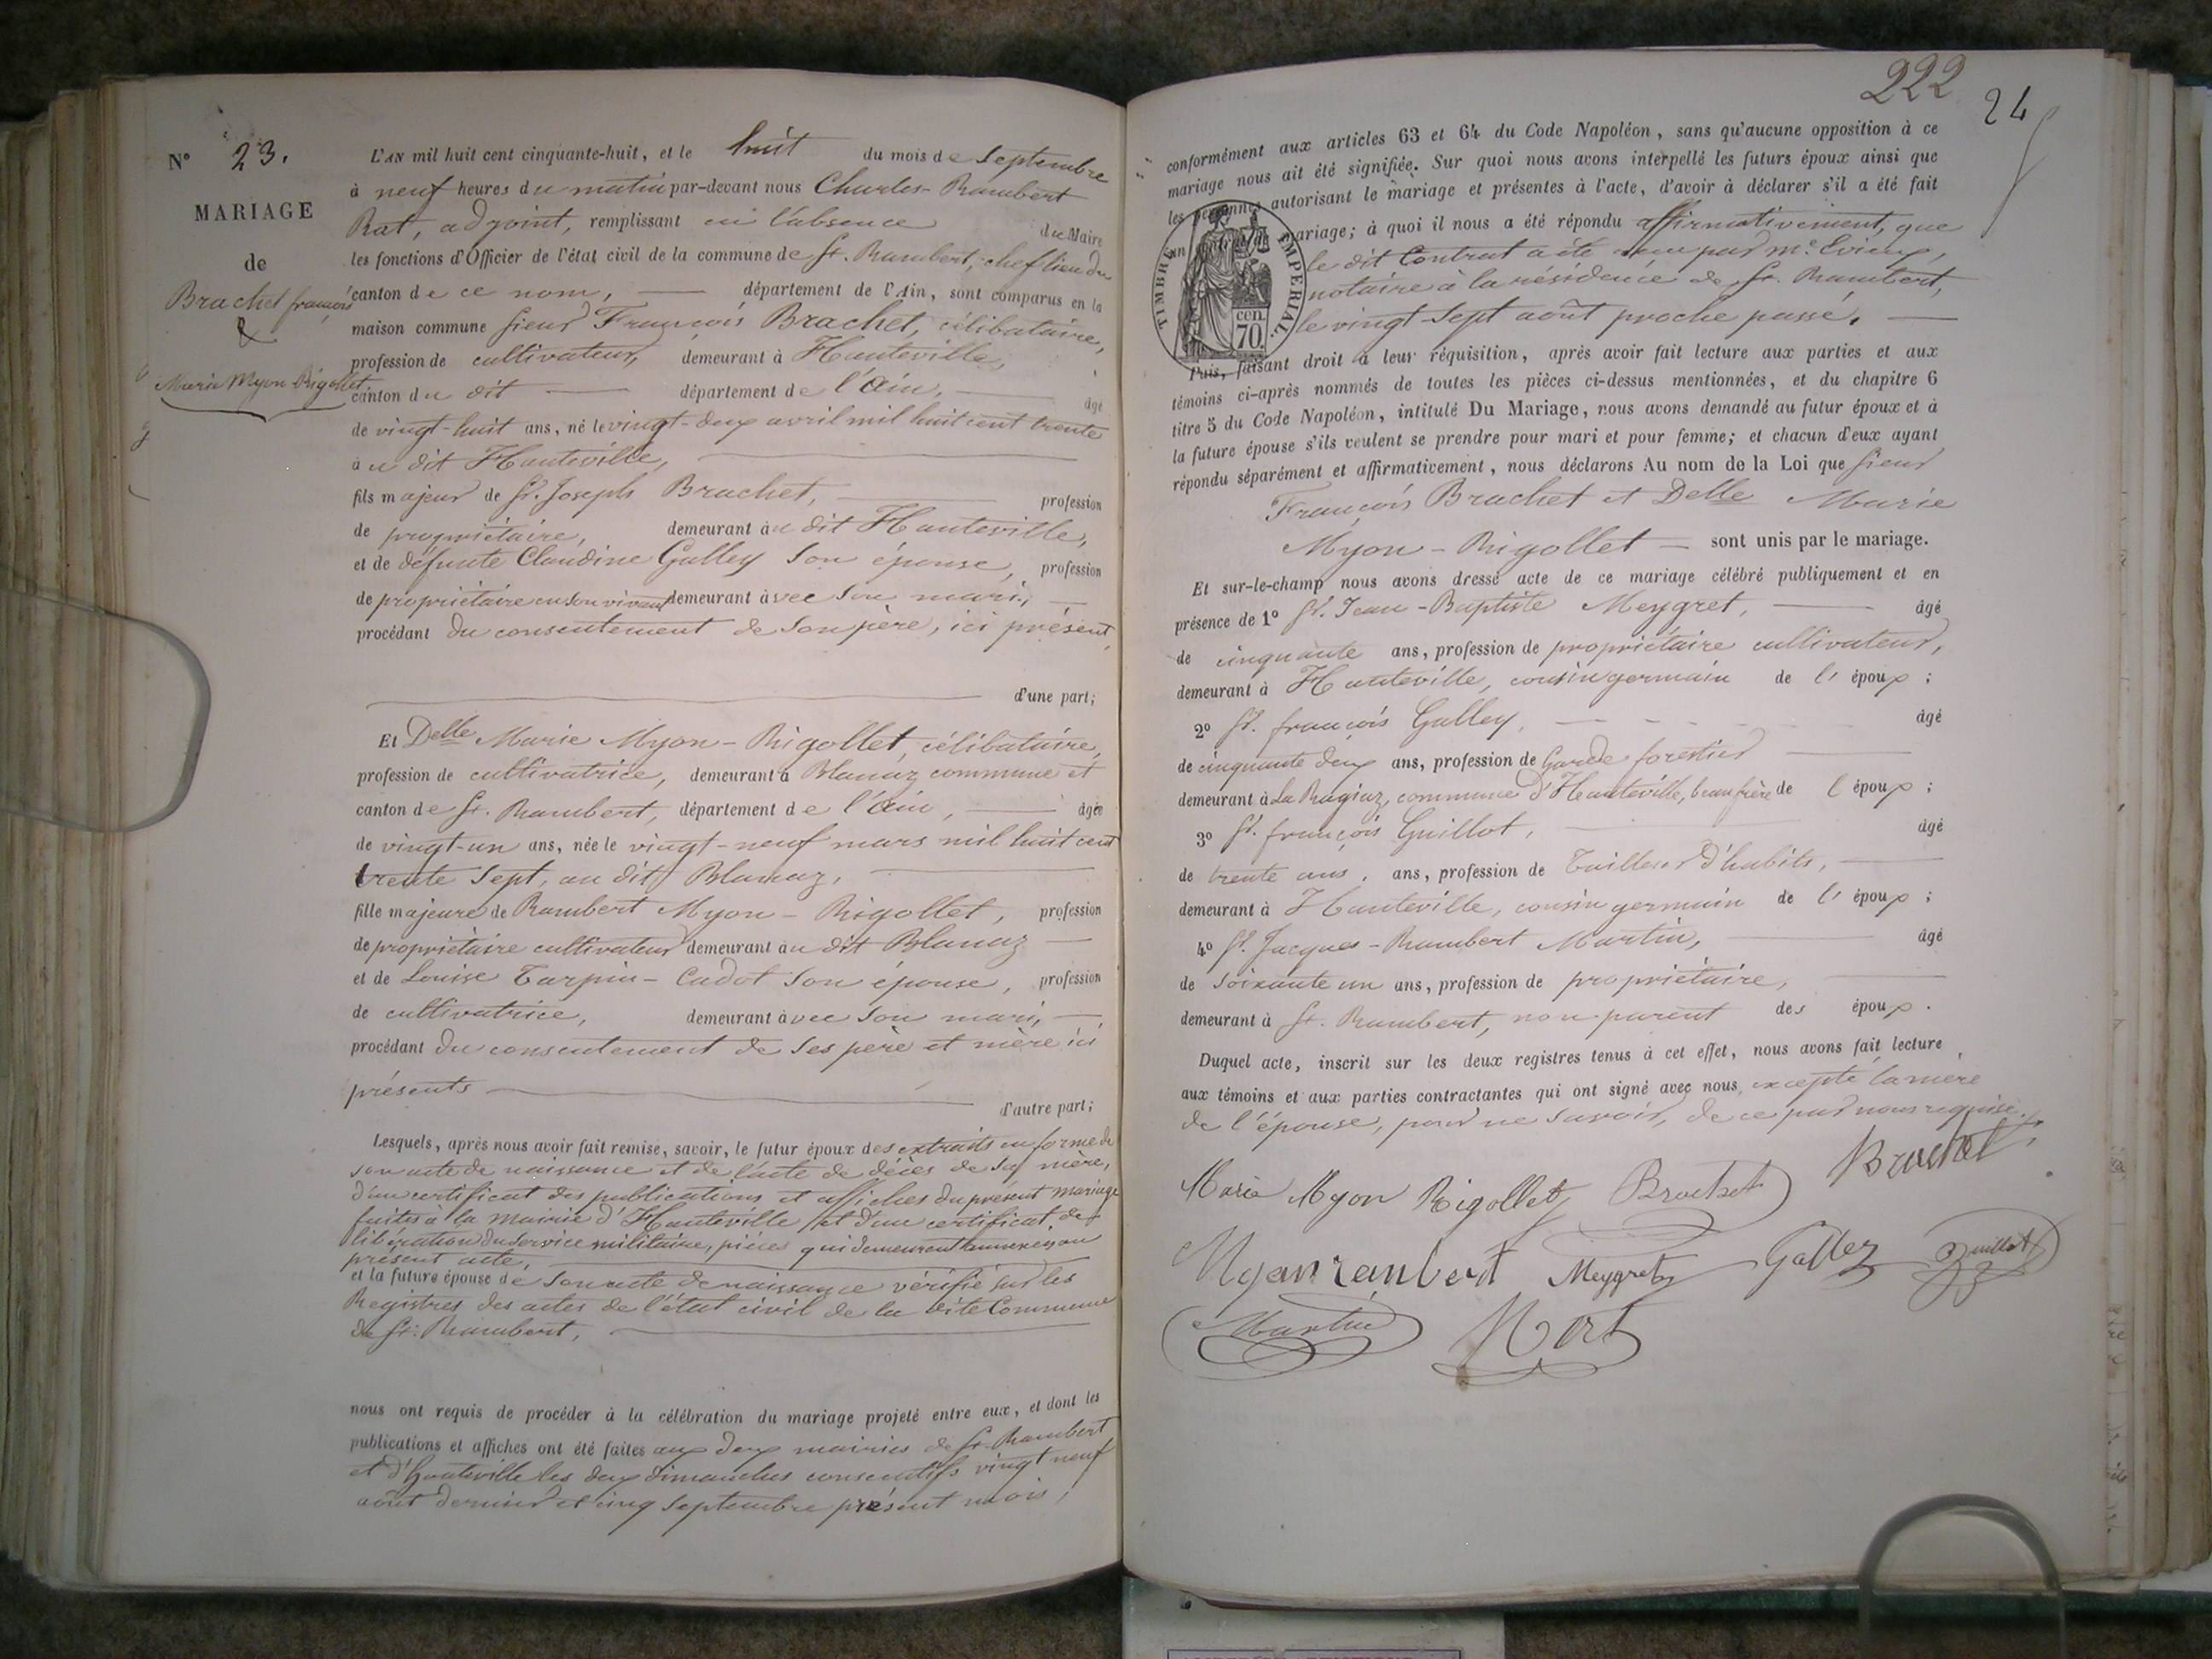 N° 23.
MARIAGE
de
Brachet françois
&
Marie Myon-Rigollet
L'AN mil huit cent cinquante-huit, et le huit du mois de Septembre
à neuf heures du matin par-devant nous Charles-Rambert
Rat, adjoint, remplissant en l'absence du Maire
les fonctions d'Officier de l'état civil de la commune de St. Rambert, chef lieu du
canton de ce nom, département de l'Ain, sont comparus en la
maison commune Sieur François Brachet, célibataire,
profession de cultivateur, demeurant à Hauteville,
canton du dit département de l'Ain, âgé
de vingt-huit ans, né le vingt-deux avril mil huit cent trente
au dit Hauteville,
fils majeur de Sr. Joseph Brachet, profession
de propriétaire, demeurant au dit Hauteville,
et de défunte Claudine Galley son épouse, profession
de propriétaire en son vivant demeurant avec son mari,
procédant du consentement de son père, ici présent,
d'une part;
Et Delle Marie Myon-Rigollet, célibataire,
profession de cultivatrice, demeurant à Blanaz commune et
canton de St. Rambert, département de l'Ain, âgée
de vingt-un ans, née le vingt-neuf mars mil huit cent
trente sept, au dit Blanaz,
fille majeure de Rambert Myon-Rigollet, profession
de propriétaire cultivateur demeurant au dit Blanaz
et de Louise Tarpin-Cadot son épouse, profession
de cultivatrice, demeurant avec son mari,
procédant du consentement de ses père et mère ici
présents
d'autre part;
Lesquels, après nous avoir fait remise, savoir, le futur époux des extraits en forme de
son acte de naissance et de l'acte de décès de sa mère,
d'un certificat des publications et affiches du présent mariage
faites à la mairie d'Hauteville et d'un certificat de
libération du service militaire, pièces qui demeurent annexées au
présent acte,
et la future épouse de son acte de naissance vérifié sur les
Registres des actes de l'état civil de la dite Commune
de St. Rambert,
nous ont requis de procéder à la célébration du mariage projeté entre eux, et dont les
publications et affiches ont été faites aux deux mairies de St. Rambert
et d'hauteville les deux dimanches consécutifs vingt neuf
août dernier et cinq Septembre présent mois,
222
24
conformément aux articles 63 et 64 du Code Napoléon, sans qu'aucune opposition à ce
mariage nous ait été signifiée. Sur quoi nous avons interpellé les futurs époux ainsi que
les personnes autorisant le mariage et présentes à l'acte, d'avoir à déclarer s'il a été fait
un mariage; à quoi il nous a été répondu affirmativement, que
le dit Contrat a été reçu par me. Evieux,
notaire à la résidence de St. Rambert,
le vingt-Sept août proche passé.
TIMBRE IMPERIAL.
cen.
70.
Puis, faisant droit à leur réquisition, après avoir fait lecture aux parties et aux
témoins ci-après nommés de toutes les pièces ci-dessus mentionnées, et du chapitre 6
titre 5 du Code Napoléon, intitulé Du Mariage, nous avons demandé au futur époux et à
la future épouse s'ils veulent se prendre pour mari et pour femme; et chacun d'eux ayant
répondu séparément et affirmativement, nous déclarons Au nom de la Loi que Sieur
François Brachet et Delle Marie
Myon-Rigollet sont unis par le mariage.
Et sur-le-champ nous avons dressé acte de ce mariage célébré publiquement et en
présence de 1° Sr. Jean-Baptiste Meygret, âgé
de cinquante ans, profession de propriétaire cultivateur,
demeurant à Hauteville, cousin germain de l' époux ;
2° Sr. françois Galley, âgé
de cinquante deux ans, profession de Garde forestier
demeurant à La Ragiaz, commune d'Hauteville, beau frère de l époux ;
3° Sr. françois Guillot, âgé
de trente ans, ans, profession de Tailleur d'habits,
demeurant à Hauteville, cousin germain de l' époux ;
4° Sr. Jacques-Rambert Martin, âgé
de Soixante un ans, profession de propriétaire,
demeurant à St. Rambert, non parent des époux.
Duquel acte, inscrit sur les deux registres tenus à cet effet, nous avons fait lecture
aux témoins et aux parties contractantes qui ont signé avec nous, excepté la mère
de l'épouse, pour ne savoir, de ce par nous requise.
Marie Myon Rigollet Brachet Brachet
Myon rambert Meygret Galley Guillot
Martin Rat